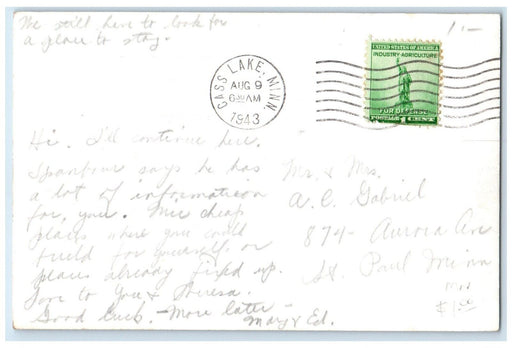 We still have to look for
a place to stay.
1.-
CASS LAKE, MINN.
AUG 9
AM
1943
UNITED STATES OF AMERICA
INDUSTRY-AGRICULTURE
FOR DEFENSE
POSTAGE 1 CENT
Hi. I'll continue here.
says he has
a lot of information
for, you. Nice cheap
places where you could
build for yourself or
places already fixed up.
Love to You & Theresa.
Good luck. - More later -
Mary & Ed.
Mr. & Mrs.
A. C. Gabriel
874 - Aurora Ave
St. Paul Minn
$1.00